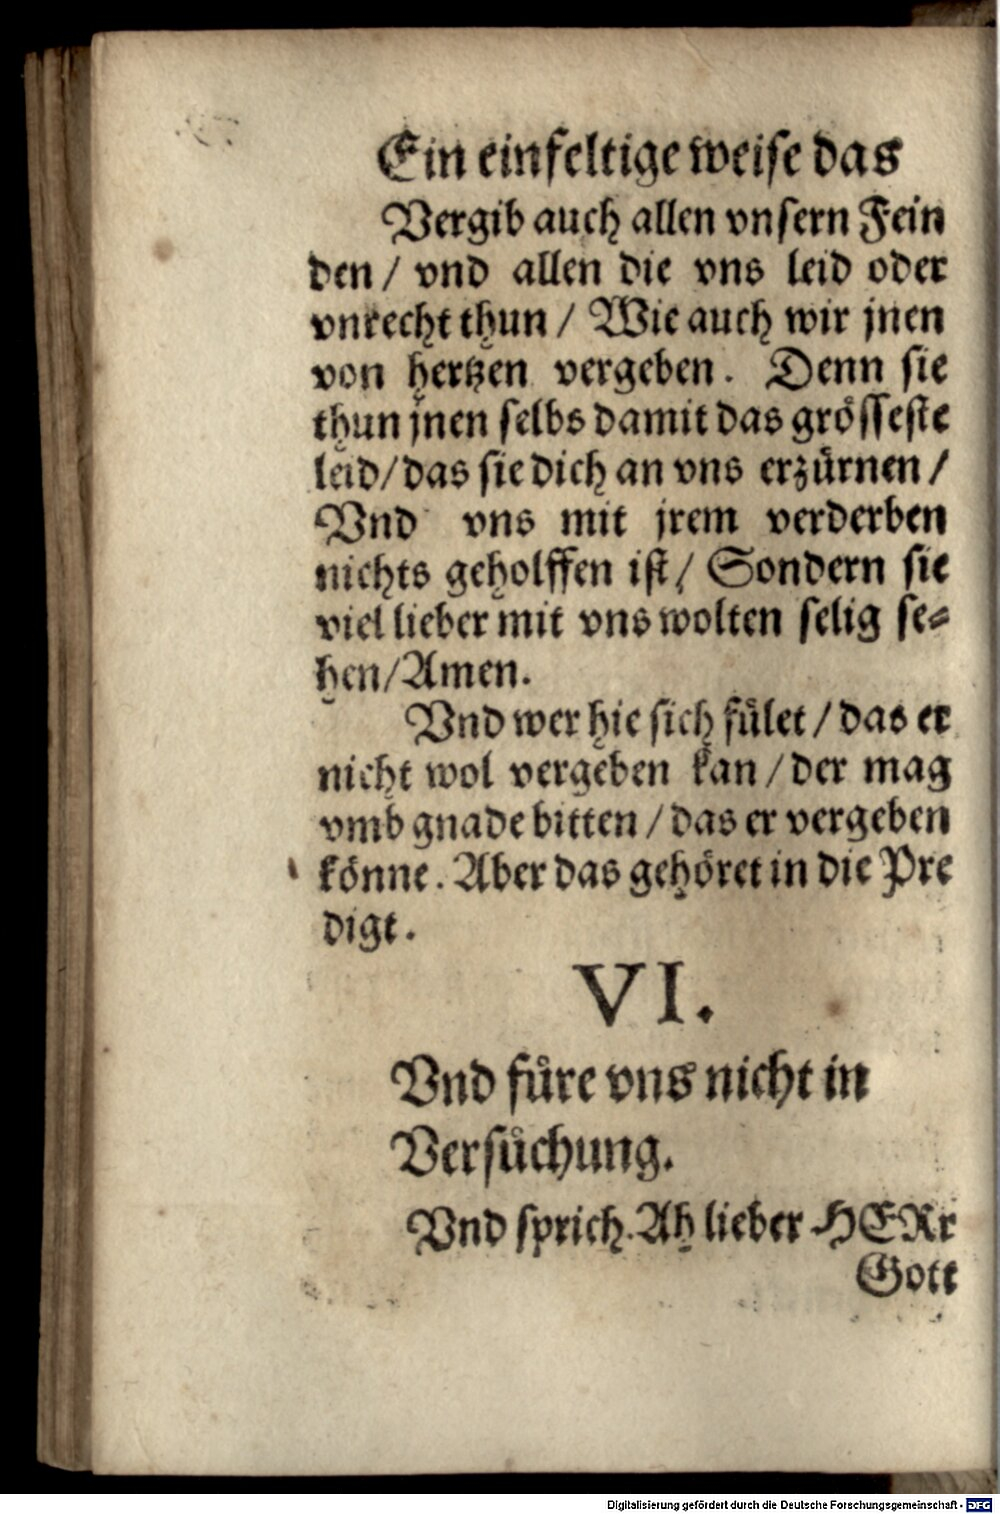 Ein einfeltige weise das
Vergib auch allen vnsern Fein
den / vnd allen die vns leid oder
vnrecht thun / Wie auch wir jnen
von hertzen vergeben. Denn sie
thun jnen selbs damit das grösseste
leid / das sie dich an vns erzürnen /
Vnd vns mit jrem verderben
nichts geholffen ist / Sondern sie
viel lieber mit vns wolten selig se-
hen / Amen.
Vnd wer hie sich fület / das er
nicht wol vergeben kan / der mag
vmb gnade bitten / das er vergeben
könne. Aber das gehöret in die Pre
digt.
VI.
Vnd füre vns nicht in
Versüchung.
Vnd sprich. Ah lieber HERr
Gott
Digitalisierung gefördert durch die Deutsche Forschungsgemeinschaft - DFG